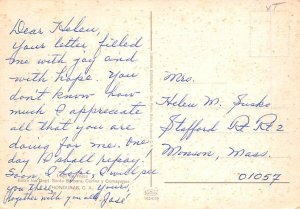 VT
Dear Helen,
Your letter filled
me with joy and
with hope. You
don't know how
much I appreciate
all that you are
doing for me. One
day I shall repay!
Soon, I hope, I will see
you there. Yours,
(together with you all) José
HONDURAS, C. A.
Mrs.
Helen M. Susko
Stafford Rt Rt 2
Monson, Mass.
01057